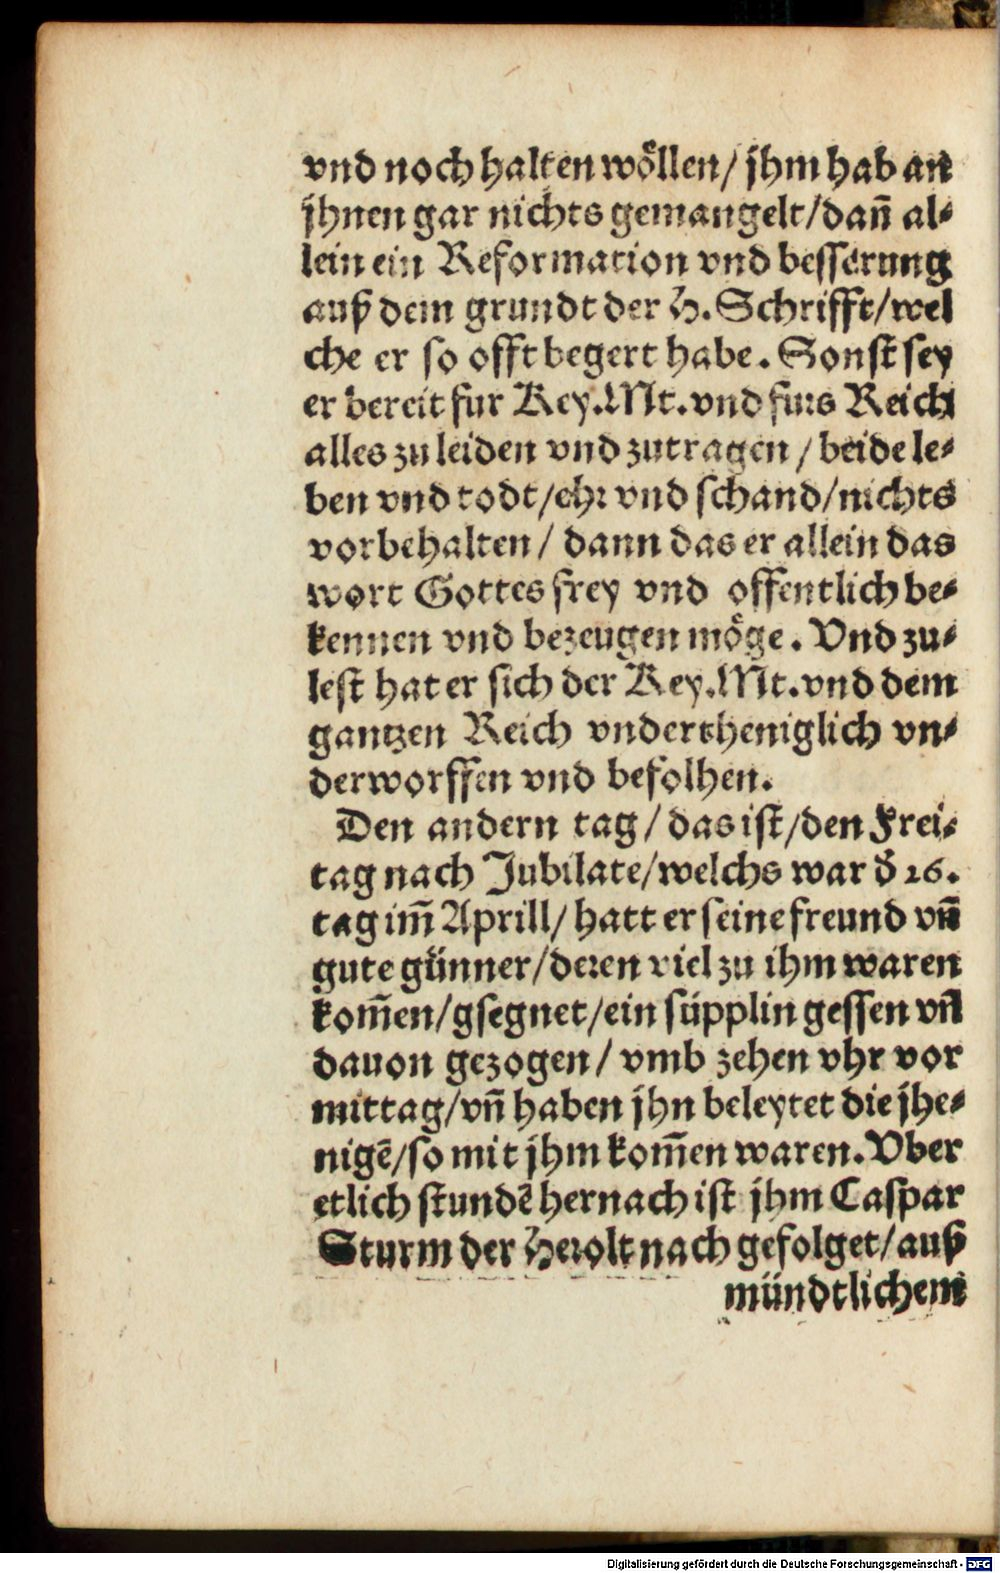 vnd noch halten wöllen/ jhm hab an
jhnen gar nichts gemangelt/dañ al⸗
lein ein Reformation vnd besserung
auß dem grundt der H. Schrifft/wel
che er so offt begert habe. Sonst sey
er bereit fur Key.Mt. vnd furs Reich
alles zu leiden vnd zutragen / beide le⸗
ben vnd todt/ehr vnd schand/nichts
vorbehalten/ dann das er allein das
wort Gottes frey vnd offentlich be⸗
kennen vnd bezeugen möge. Vnd zu⸗
lest hat er sich der Key.Mt.vnd dem
gantzen Reich vndertheniglich vn⸗
derworffen vnd befolhen.
Den andern tag/ das ist/den Frei⸗
tag nach Jubilate/welchs war d̄ 26.
tag im̃ Aprill/ hatt er seine freund vñ
gute günner/deren viel zu ihm waren
kom̃en/gsegnet/ein süpplin gessen vñ
dauon gezogen/ vmb zehen vhr vor
mittag/vñ haben jhn beleytet die jhe⸗
nigẽ/so mit jhm kom̃en waren. Vber
etlich stundẽ hernach ist jhm Caspar
Sturm der Herolt nach gefolget/auß
mündtlichem
Digitalisierung gefördert durch die Deutsche Forschungsgemeinschaft - DFG